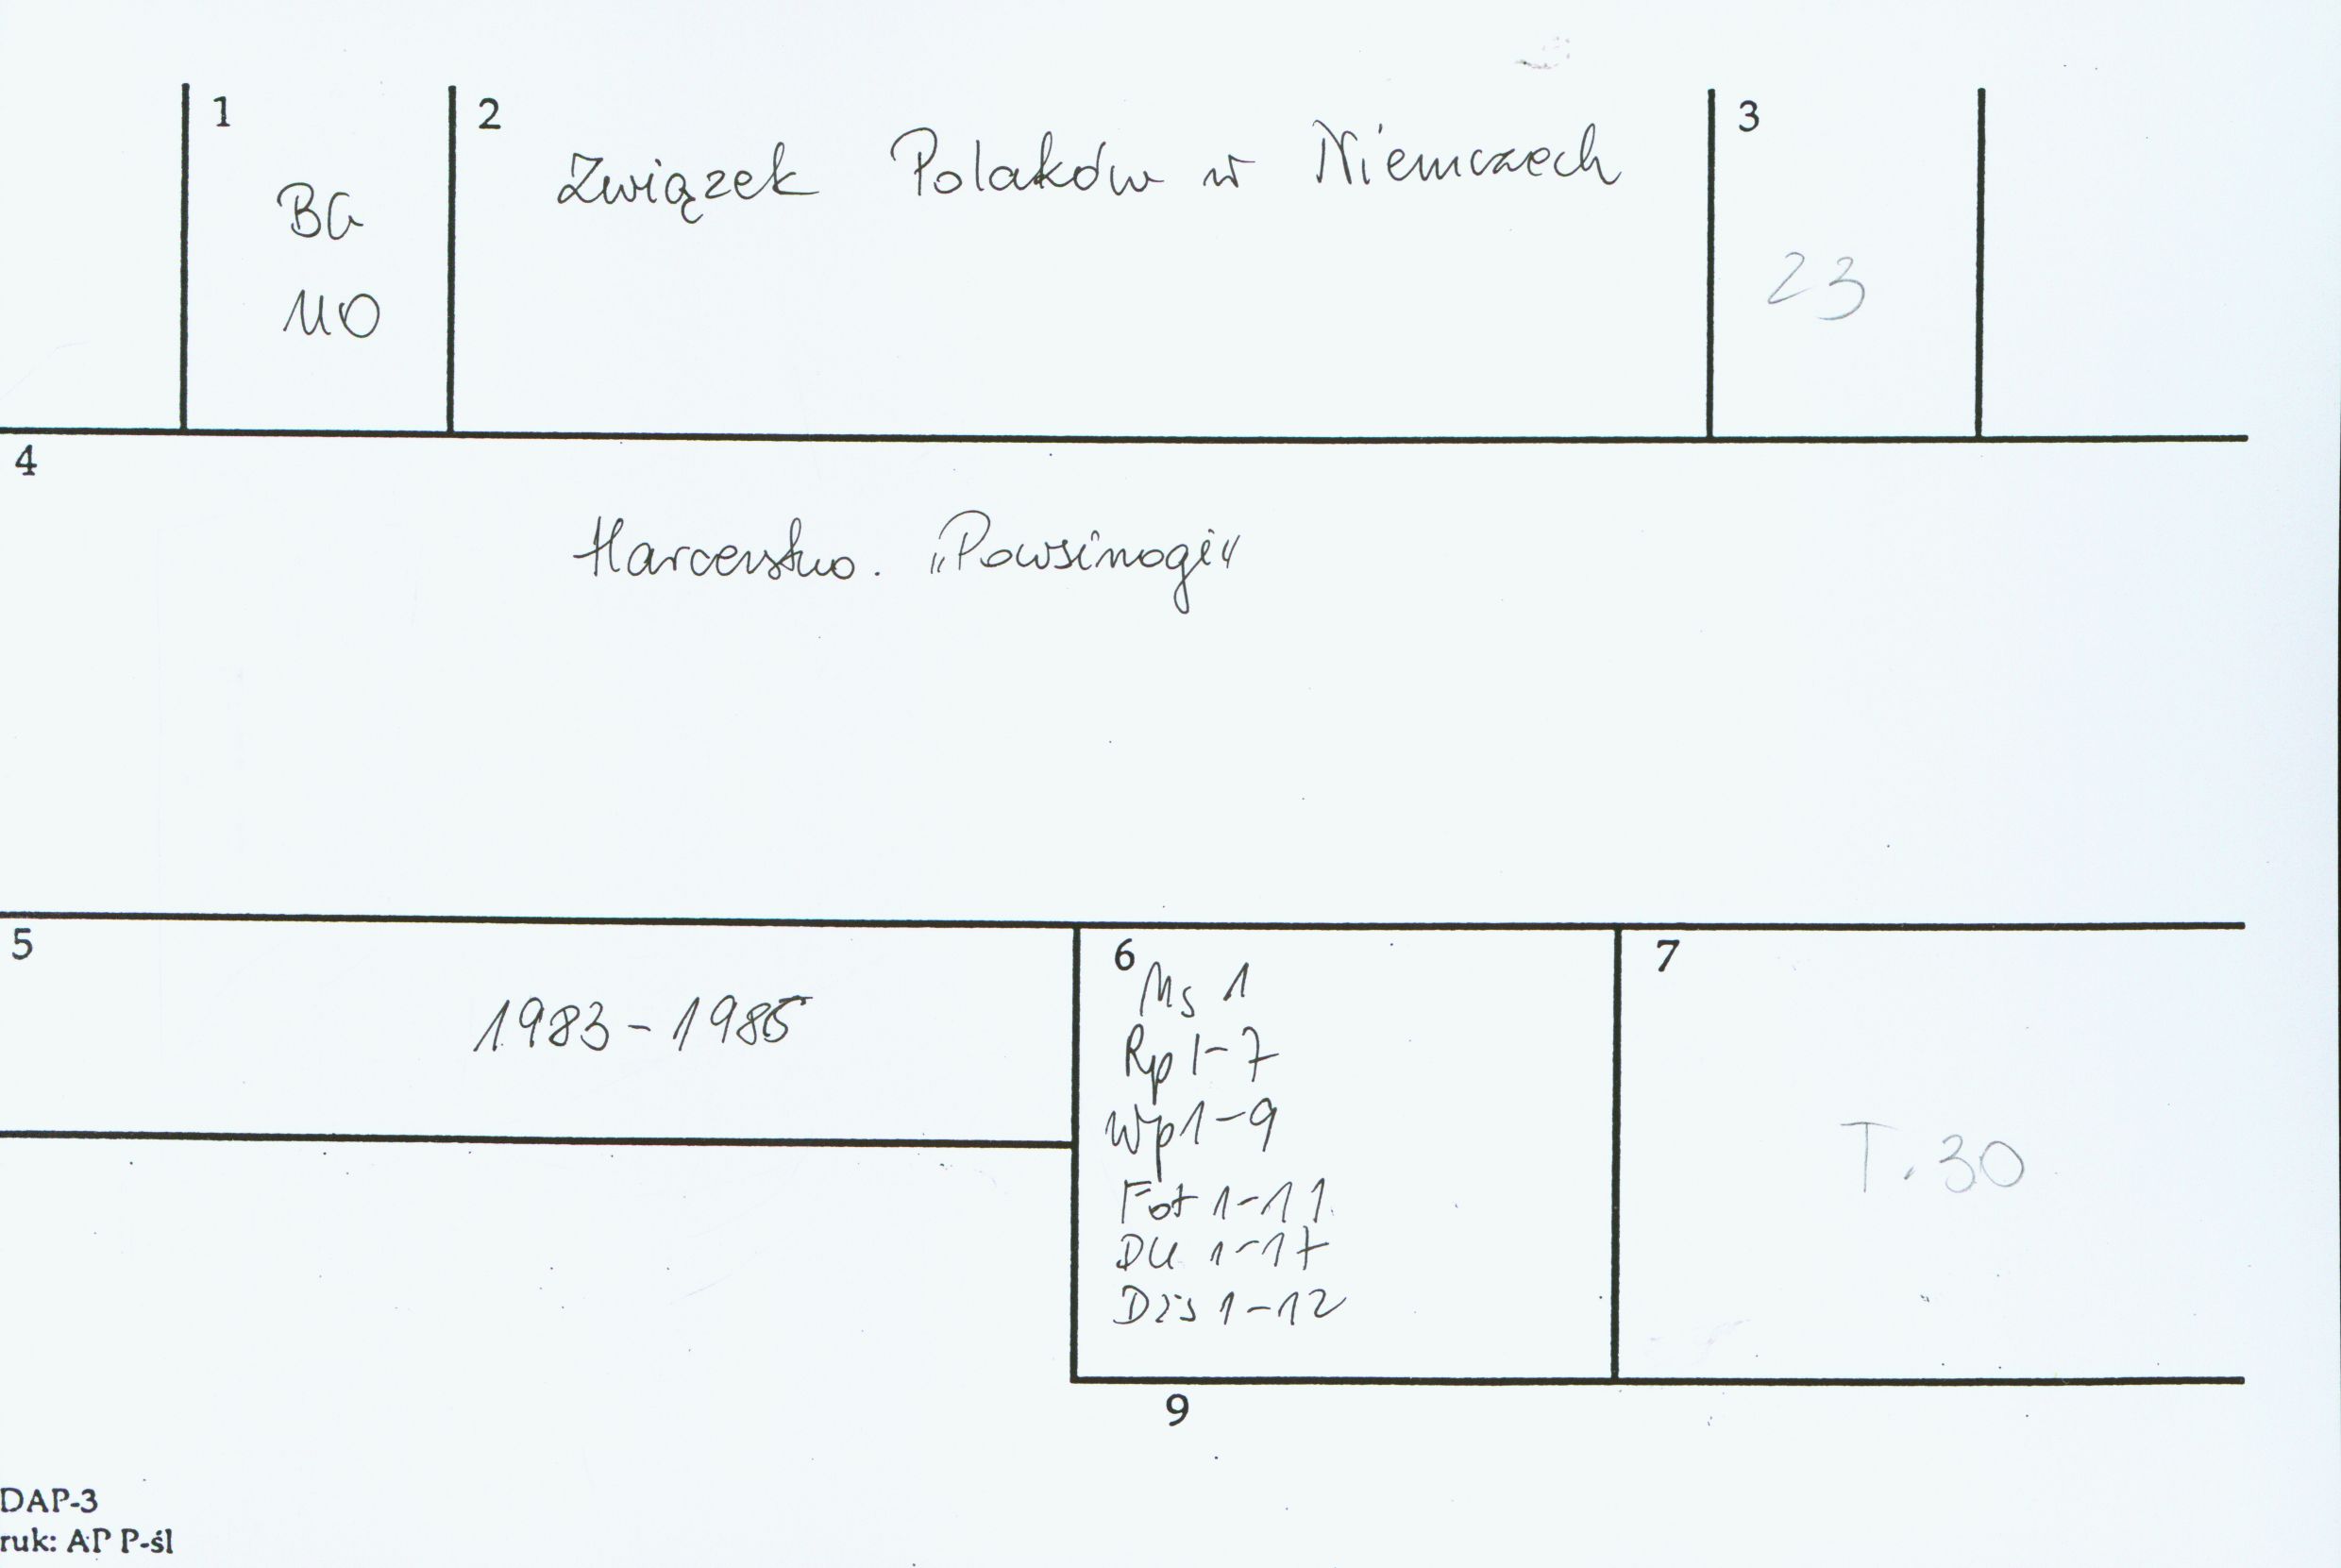 1
2
3
BG
110
Związek Polaków w Niemczech
23
4
Harcerstwo. „Powsinogi"
5
1983-1985
6
Ms 1
Rp 1-7
Wp 1-9
Fot 1-11
DU 1-17
Dzs 1-12
7
T. 30
9
DAP-3
ruk: AP P-śl